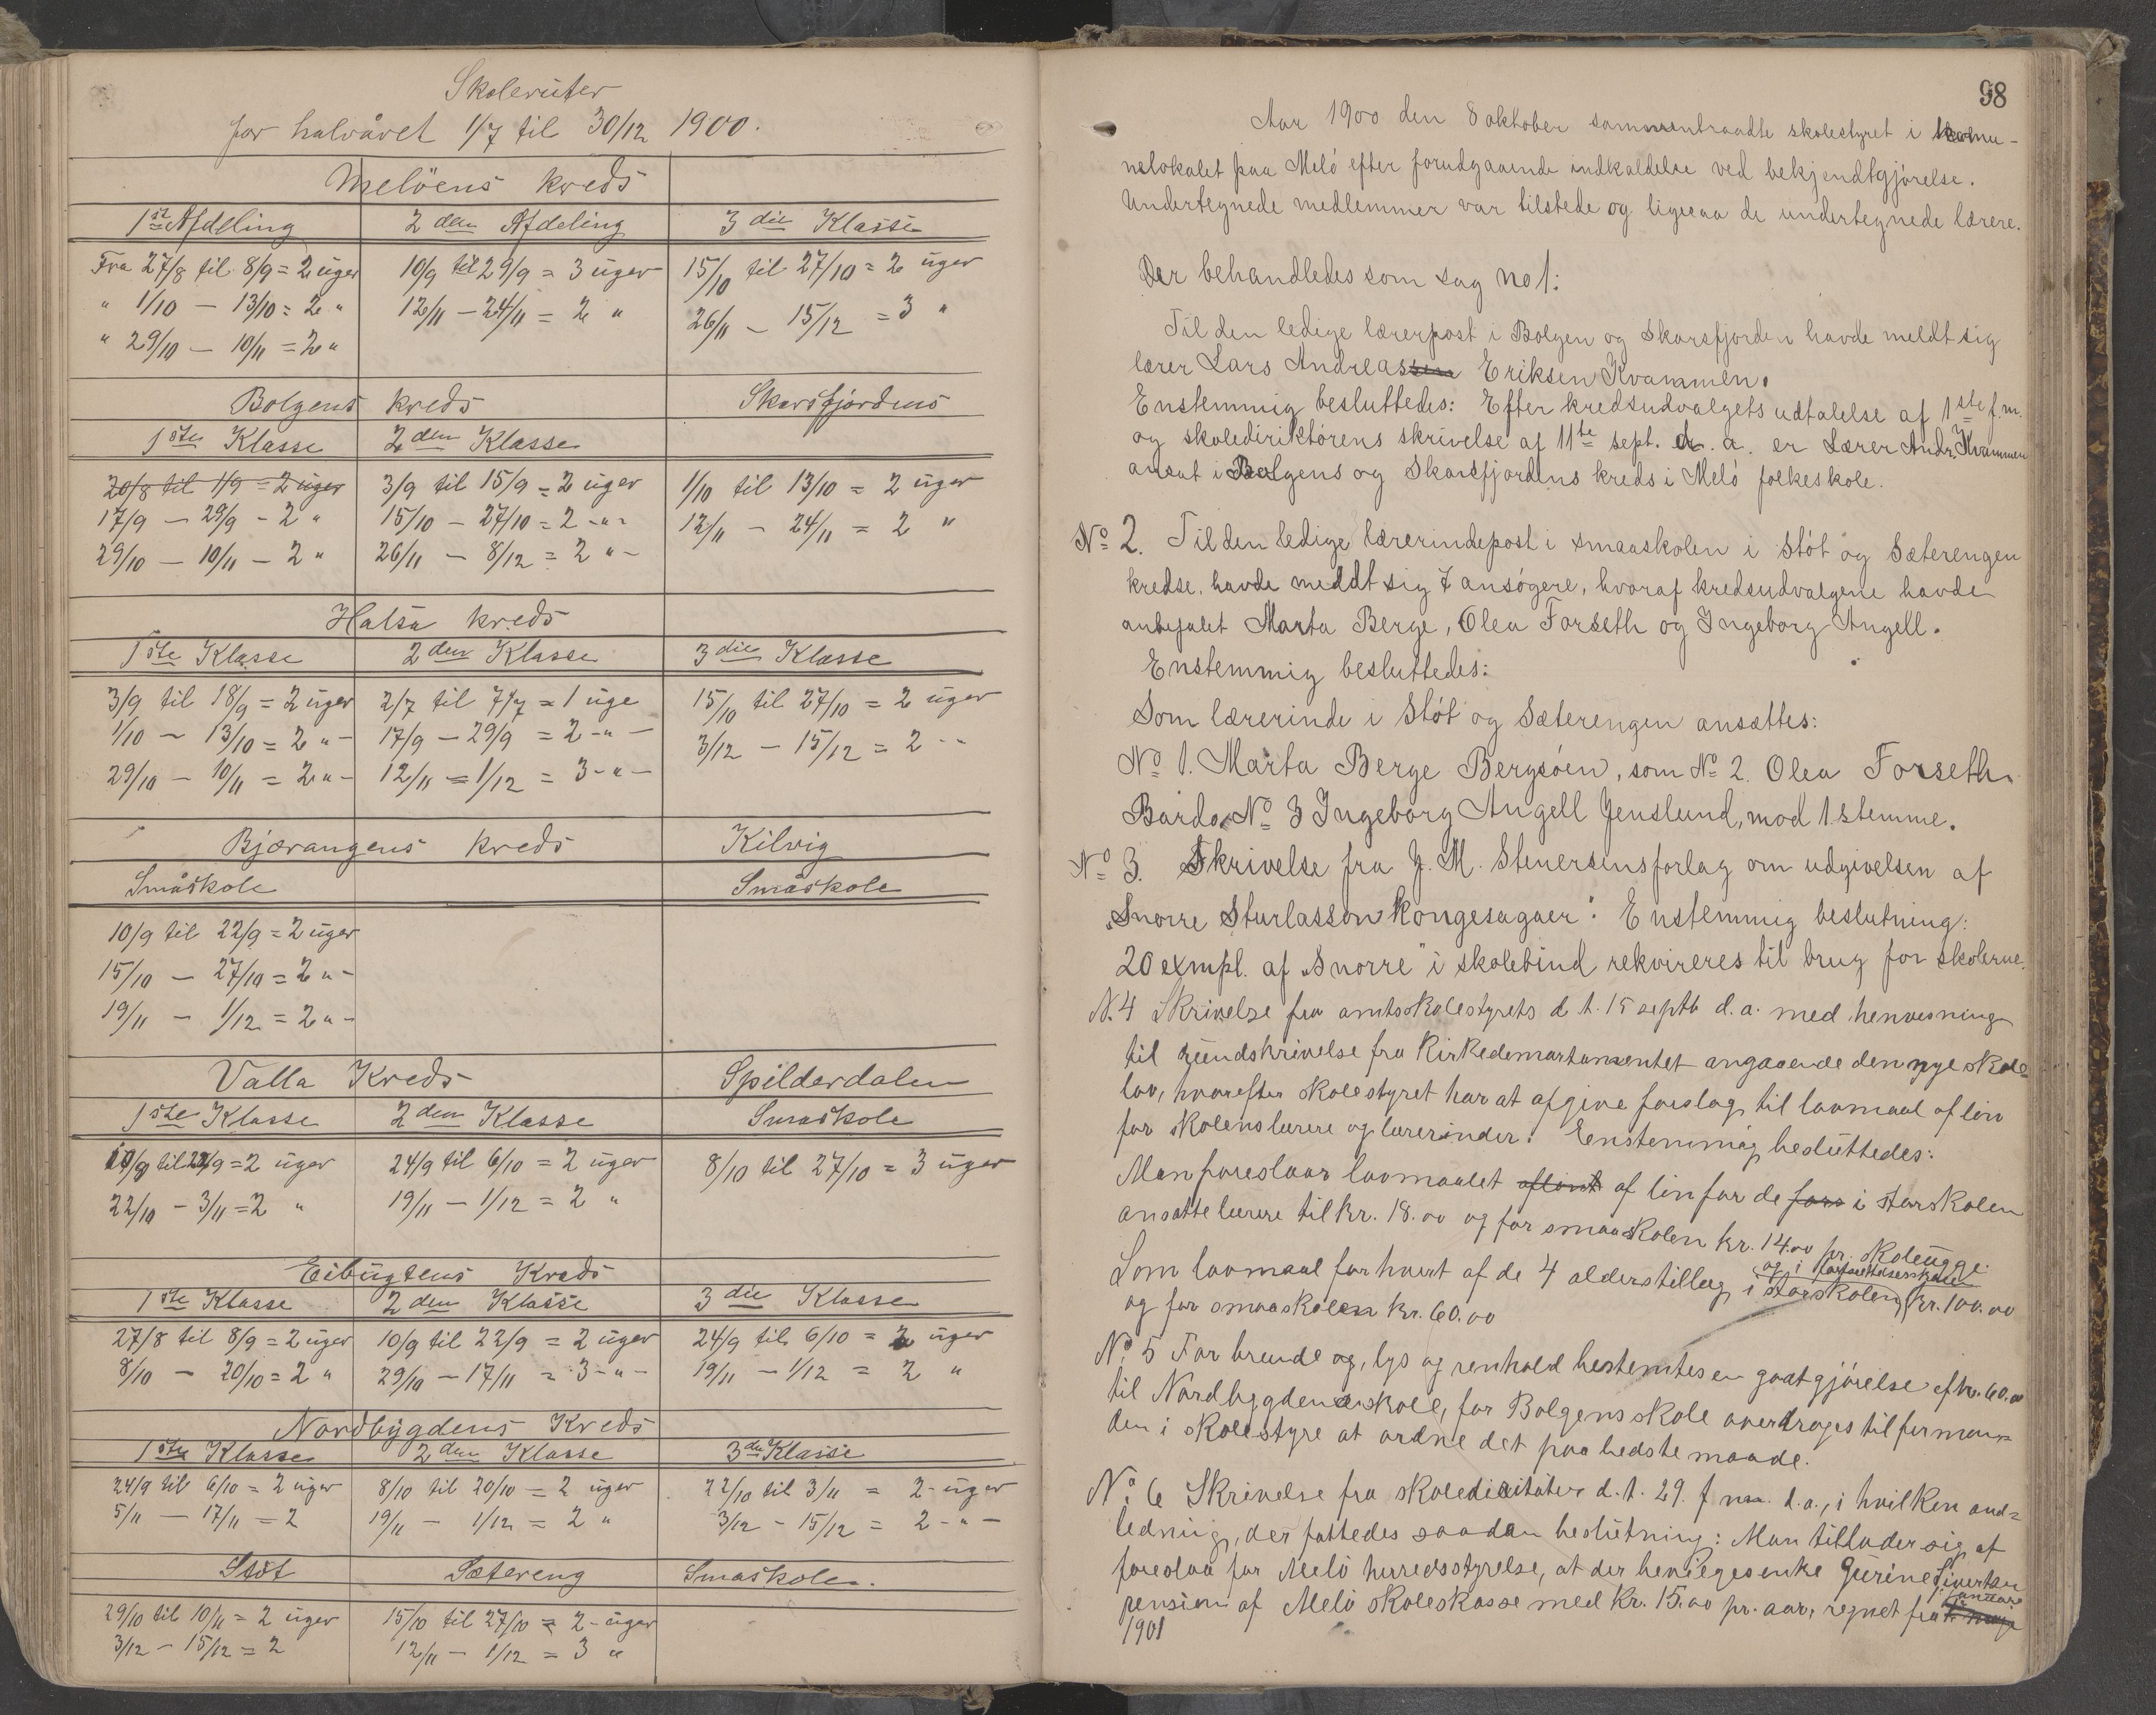 Skoleruter
for halvåret 1/7 til 30/12 1900.
Meløens kreds
1ste Afdeling 2den Afdeling 3die Klasse
Fra 27/8 til 8/9 = 2 uger 10/9 til 29/9 = 3 uger 15/10 til 27/10 = 2 uger
" 1/10 — 13/10 = 2 " 12/11 — 24/11 = 2 " 26/11 — 15/12 = 3 "
" 29/10 — 10/11 = 2 "
Bolgens kreds Skarsfjordens
1ste Klasse 2den Klasse
20/8 til 1/9 = 2 uger 3/9 til 15/9 = 2 uger 1/10 til 13/10 = 2 uger
17/9 — 29/9 - 2 " 15/10 — 27/10 = 2 -"- 12/11 — 24/11 = 2 "
29/10 — 10/11 — 2 " 26/11 — 8/12 = 2 "-
Halsa kreds
1ste Klasse 2den Klasse 3die Klasse
3/9 til 18/9 = 2 uger 2/7 til 7/7 = 1 uge 15/10 til 27/10 = 2 uger
1/10 — 13/10 = 2 "- 17/9 — 29/9 = 2 -"- 3/12 — 15/12 = 2 --
29/10 — 10/11 = 2 "- 12/11 — 1/12 = 3 -"-
Bjærangens kreds Kilvig
Småskole Småskole
10/9 til 22/9 = 2 uger
15/10 — 27/10 = 2 "-
19/11 — 1/12 = 2 "-
Valla Kreds Spilderdalen
1ste Klasse 2den Klasse Småskole
10/9 til 22/9 = 2 uger 24/9 til 6/10 = 2 uger 8/10 til 27/10 = 3 uger
22/10 — 3/11 = 2 " 19/11 — 1/12 = 2 "
Eibugtens Kreds
1ste Klasse 2den Klasse 3die Klasse
27/8 til 8/9 = 2 uger 10/9 til 22/9 = 2 uger 24/9 til 6/10 = 2 uger
8/10 — 20/10 = 2 " 29/10 — 17/11 = 3 -"- 19/11 — 1/12 = 2 "
Nordbygdens Kreds
1ste Klasse 2den Klasse 3die Klasse
24/9 til 6/10 = 2 uger 8/10 til 20/10 = 2 uger 22/10 til 3/11 = 2 - uger
5/11 — 17/11 = 2 19/11 — 1/12 = 2 " 3/12 - 15/12 = 2 -"-
Støt Sætereng Smaskole.
29/10 til 10/11 = 2 uger 15/10 til 27/10 = 2 - uger
3/12 — 15/12 = 2 12/11 — 1/12 = 3 "
98
Aar 1900 den 8 oktober sammentraadte skolestyret i kommu-
nelokalet paa Melø efter forudgaaende indkaldelse ved bekjendtgjørelse.
Undertegnede medlemmer var tilstede og ligesaa de undertegnede lærere.
Der behandledes som sag no 1:
Til den ledige lærerpost i Bolgen og Skarsfjorden havde meldt sig
lærer Lars Andreassen Eriksen Kvammen.
Enstemmig besluttedes: Efter kredsudvalgets udtalelse af 1ste f.m.
og skoledirektørens skrivelse af 11te sept. d. a. er Lærer Andr. Kvammen
ansat i Bolgens og Skarsfjordens kreds i Melø folkeskole.
No 2. Til den ledige lærerindepost i smaaskolen i Støt og Sæterengen
kredse, havde meldt sig 7 ansøgere, hvoraf kredsudvalgene havde
anbefalet Marta Berge, Olea Forseth og Ingeborg Angell.
Enstemmig besluttedes:
Som lærerinde i Støt og Sæterengen ansættes:
No 1. Marta Berge Bergsøen, som No 2. Olea Forseth
Bardo, No 3 Ingeborg Angell Jenslund, mod 1 stemme.
No 3. Skrivelse fra J. M. Stenersens forlag om udgivelsen af
"Snorre Sturlasson Kongesagaer". Enstemmig beslutning:
20 exmpl. af "Snorre" i skolebind rekvireres til brug for skolerne.
N. 4 Skrivelse fra amtsskolestyrets d. t. 15 septb d. a. med henvisning
til rundskrivelse fra Kirkedepartamentet angaaende den nye skole-
lov, hvorefter skolestyret har at afgive forslag til lavmaal af løn
for skolens lærere og lærerinder. Eenstemmig besluttedes:
Man foreslaar lavmaalet aflønt af løn for de fors i storskolen
ansatte lærere til kr. 18.00 og for smaaskolen kr. 14.00 pr. skoleugge.
Som lavmaal for hvert af de 4 alderstillæg i storskolen og i fortsættelsesskole kr. 100.00
og for smaaskolen kr. 60.00
No 5 For brende og, lys og renhold bestemtes en godtgjørelse af kr. 60.00
til Nordbygdens skole, for Bolgens skole overdrages til forman-
den i skolestyre at ordne det paa bedste maade.
No 6 Skrivelse fra skoledirektør d. t. 29. f m. d. a., i hvilken and-
ledning, der fattedes saadan beslutning: Man tillader sig at
foreslaa for Melø herredsstyrelse, at der bevilges enke Gurine Sivertsen
pension af Melø skolekasse med kr. 15.00 pr. aar, regnet fra 1. januar
1901